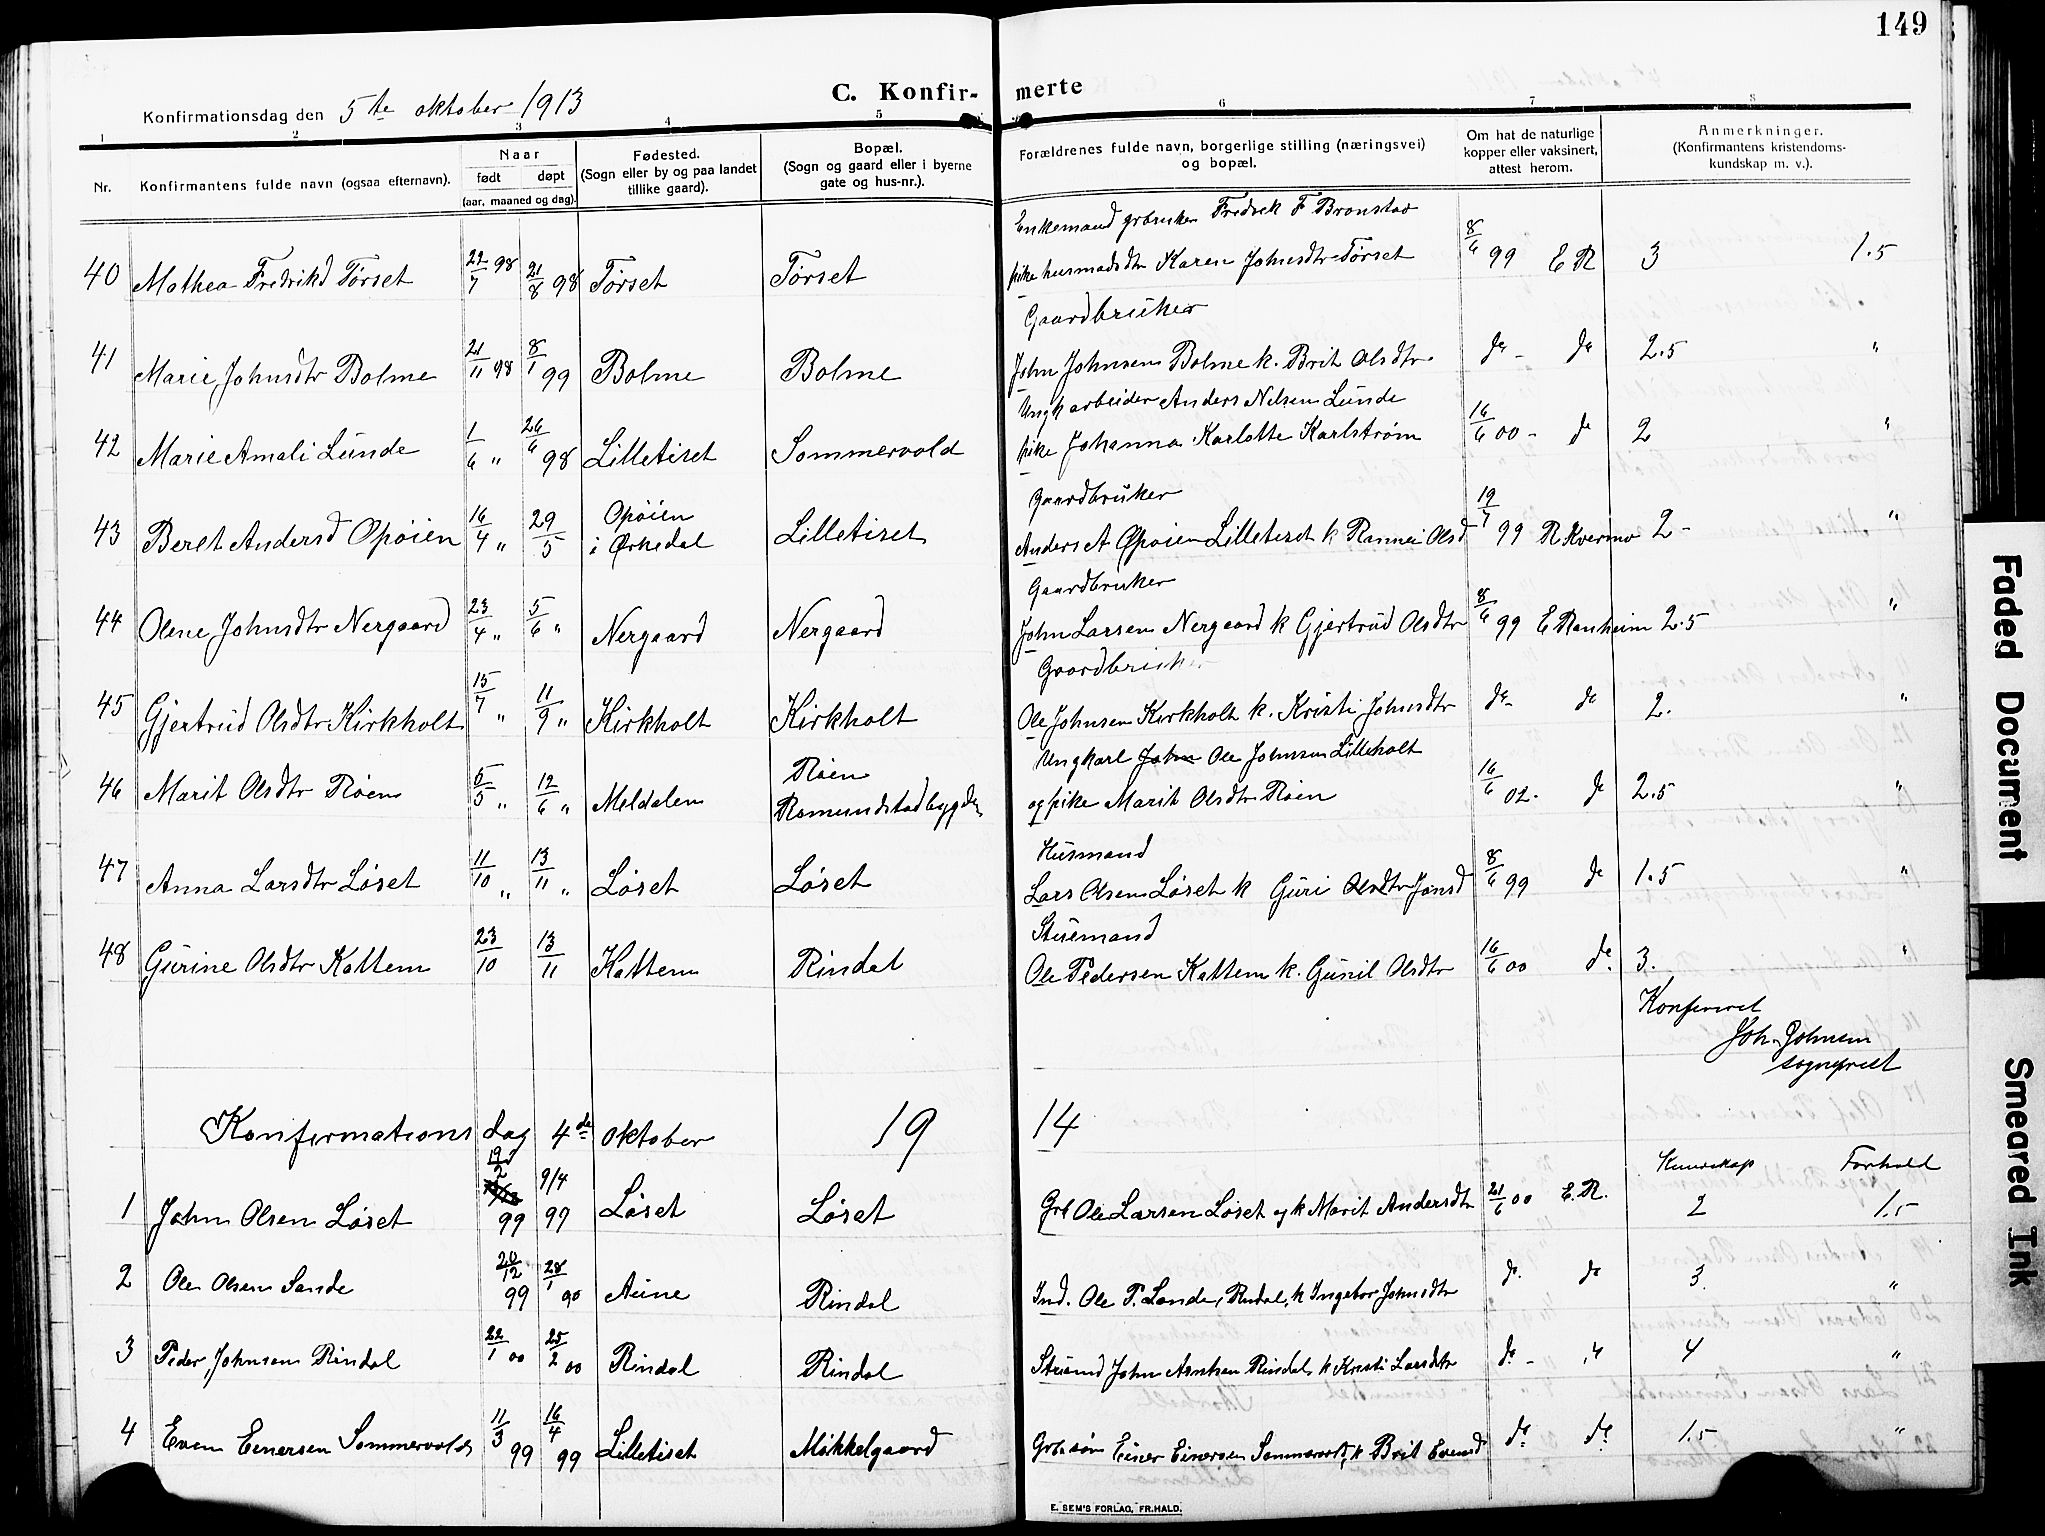 149
Konfirmationsdag den 5te oktober 1913
C. Konfirmerte
1 2 3 4 5 6 7 8
Nr. Konfirmantens fulde navn (ogsaa efternavn). Naar født døpt (aar, maaned og dag). Fødested. (Sogn eller by og paa landet tillike gaard). Bopæl. (Sogn og gaard eller i byerne gate og hus-nr.). Forældrenes fulde navn, borgerlige stilling (næringsvei) og bopæl. Om hat de naturlige kopper eller vaksinert, attest herom. Anmerkninger. (Konfirmantens kristendomskundskap m. v.).
Enkemand grbruker Fredrik F Bronstad
40 Mathea Fredrikd Tørset 22/7 98 21/8 98 Tørset Tørset pike husmadsdtr Karen Johnsdtr Tørset 8/6 99 E R 3 1.5
Gaardbruker
41 Marie Johnsdtr Bolme 21/11 98 8/1 99 Bolme Bolme John Johnsen Bolme k. Brit Olsdtr do - do 2.5 "
Ungk arbeider Anders Nilsen Lunde
42 Marie Amali Lunde 1/6 " 26/6 98 Lilletiset Sommervold pike Johanna Karlotte Karlstrøm 16/6 00 - do 2 "
Gaardbruker
43 Beret Andersd Opøien 16/4 " 29/5 Opøien i Ørkedal Lilletiset Anders A Opøien Lilletiset k Rannei Olsd 19/7 99 R Kvermo 2 - "
Gaardbruker
44 Olene Johnsdtr Nergaard 23/4 " 5/6 " Nergaard Nergaard John Larsen Nergaard k Gjertrud Olsdtr 8/6 99 E Ranheim 2.5 "
Gaardbruker
45 Gjertrud Olsdtr Kirkholt 15/7 " 11/9 " Kirkholt Kirkholt Ole Johnsen Kirkholt k. Kristi Johnsdtr do - do 2. "
Ungkarl John Ole Johnsen Lilleholt
46 Marit Olsdtr Røen 5/5 " 12/6 " Meldalen Røen Romundstadbygden og pike Marit Olsdtr Røen 16/6 02. do 2.5 "
Husmand
47 Anna Larsdtr Løset 11/10 " 13/11 " Løset Løset Lars Olsen Løset k Guri Olsdtr Jonsd 8/6 99 do 1.5 "
Stuemand
48 Gurine Olsdtr Kattem 23/10 13/11 Kattem Rindal Ole Pedersen Kattem k. Gunil Olsdtr 16/6 00 do. 3. "
Konfereret
Joh. Johnsen
sogneprest
Konfirmations dag 4de oktober 1914
Kunnskap Forhold
1 John Olsen Løset 19/2 99 9/4 99 Løset Løset Grb Ole Larsen Løset og k Marit Andersdtr 21/6 00 E. R. 2 1.5
2 Ole Olsen Sande 20/12 99 28/1 00 Aune Rindal Ind. Ole P. Sande, Rindal, k Ingebor Johnsdtr do. do 3. "
3 Peder Johnsen Rindal 22/1 00 25/2 00 Rindal Rindal Stuemd John Arntsen Rindal, k Kristi Larsdtr do - " 4 "
4 Even Eenersen Sommervold 11/3 99 16/4 99 Lilletiset Mikkelgaard Grbr søn Einer Einersen Sommervold, k Brit Evensd do. do. 1.5 "
E. SEM'S FORLAG, FR.HALD.
Faded Document
Smeared Ink